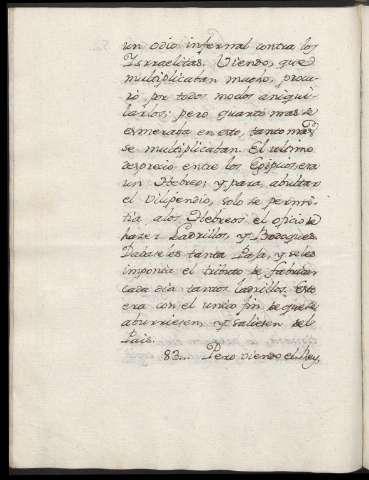 un odio infernal contra los
Israelitas. Viendo, que
multiplicaban mucho, procu-
ró por todos modos aniqui-
larlos; pero quanto mas se
esmeraba en esto, tanto mas
se multiplicaban. El ultimo
desprecio entre los Egipcios, era
un Hebreo; y para abultar
el vilipendio, solo se permi-
tia a los Hebreos el oficio de
hazer Ladrillos, y
Dabaseles tanta Paja, y se les
imponia el tributo de fabricar
cada dia tantos ladrillos. Este
era con el unico fin de que se
aburriesen, y saliesen del
Pais.
83... Pero viendo el Rey,